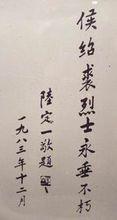 侯绍裘烈士永垂不朽
陆定一敬题
一九八三年十二月